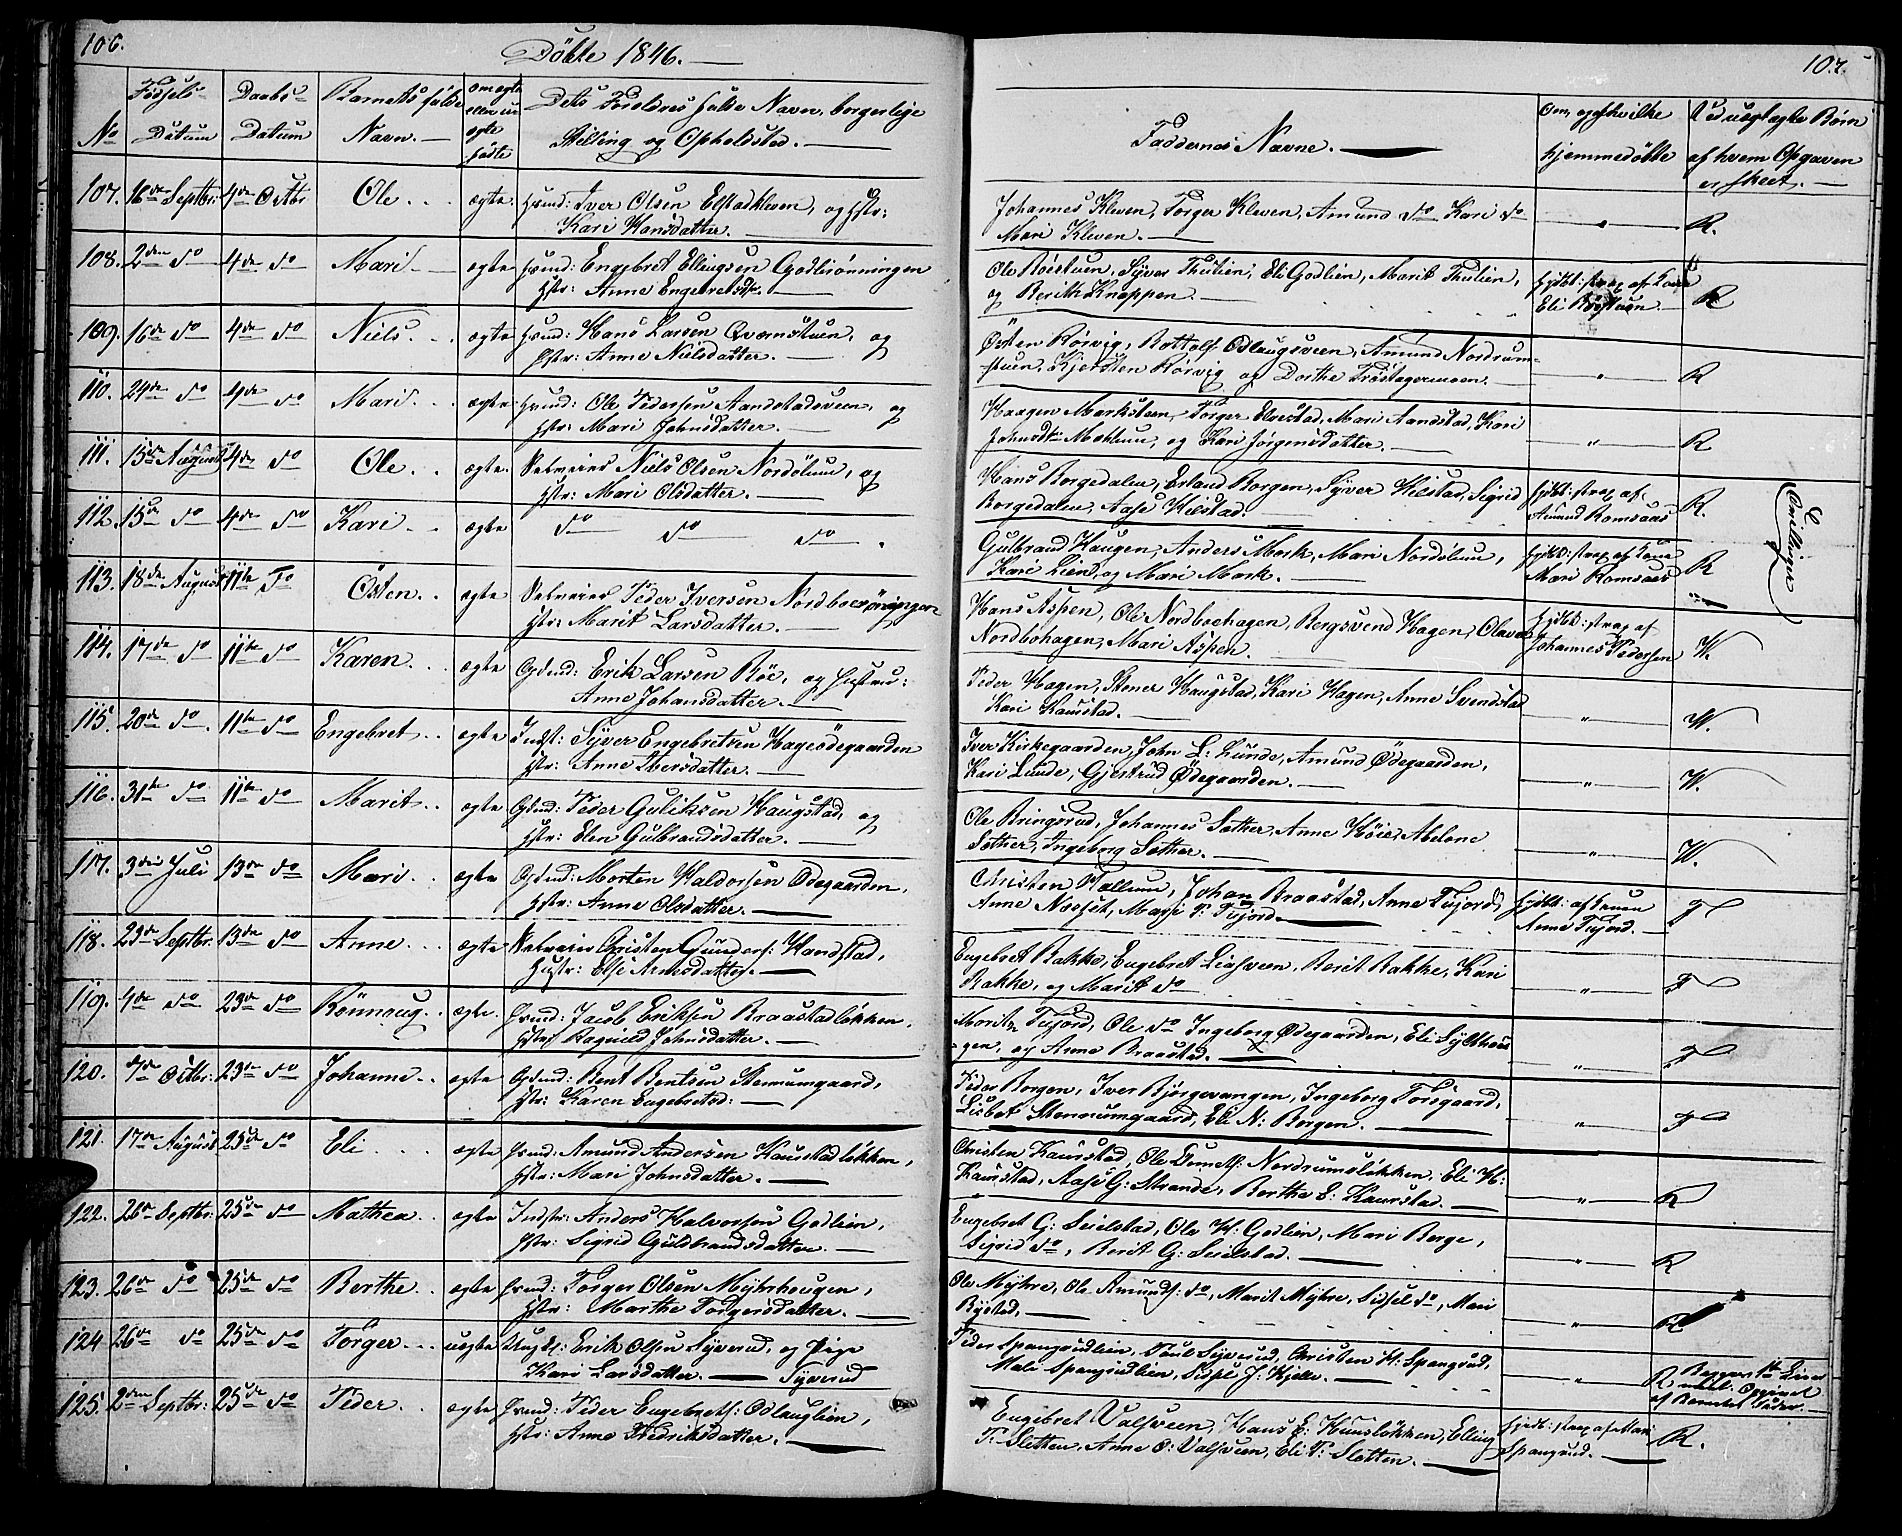 106.
Döbte 1846.
No
Fødsels-
Datum
Daabs-
Datum
Barnets fulde
Navn.
om ægte
eller u-
ægte
fødte
Dets Foreldres fulde Navn, borgerlige
Stilling og Opholdsted.
107. 16de Septbr: 4de Octbr Ole ægte Huusmd: Iver Olsen Elstadkleven, og Hstr:
Kari Hansdatter.
108. 2den do 4de do Mari ægte Engebret Ellingsen Godlirønningen
Hstr: Anne Engebretsdtr.
109. 16de do 4de do Niels ægte Hans Larsen Qvernstuen, og
Hstr: Anne Nielsdatter.
110. 24de do 4de do Mari ægte Ole Pedersen Aandstadsveen, og
Hstr: Mari Johnsdatter.
111. 15de August 4de do Ole ægte Selveier Niels Olsen Nordölum, og
Hstr: Mari Olsdatter.
112. 15de do 4de do Kari ægte do do do
113. 18de August 11te do Östen ægte Selveier Peder Iversen Nordboe
Hstr: Marit Larsdatter.
114. 17de do 11te do Karen ægte Gdmd: Erik Larsen Röe, og Hustru:
Anne Johansdatter.
115. 20de do 11te do Engebret ægte Indst: Syver Engebretsen Hageödegaarden
Hstr: Anne Ibersdatter.
116. 31te do 11te do Marit ægte Gdmd: Peder Guliksen Haugstad, og
Hstr: Elen Gulbrandsdatter.
117. 3die Juli 13de do Mari ægte Gdmd: Morten Haldorsen Ödegaarden,
Hstr: Anne Olsdatter.
118. 23de Septbr. 13de do Anne ægte Selveier Cristen Gunders: Handstad,
Hustr: Else Arnesdatter.
119. 4de do 23de do Rönnoug ægte Jacob Eriksen Braastadløkken,
Hstr Ragnild Johnsdatter.
120. 7de Octbr: 23de do Johanne ægte Gdmd: Bent Bentsen Stenumgaard,
Hstr: Karen Engebretsd:
121. 17de August 25de do Eli ægte Amund Andersen Kaustadløkken,
Hstr: Mari Johnsdatter.
122. 26de Septbr: 25de do Mathea ægte Indstr: Anders Halvorsen Godlien,
Hstr: Sigrid Guldbrandsdatter.
123. 26de do 25de do Berthe ægte Torger Olsen Myhrhougen,
Hstr: Marthe Torgersdatter.
124 26de do 25de do Torger uægte Ungkl: Erik Olsen Syverud, og Pige
Kari Larsdatter. Syverud
125. 2den Septbr: 25de do Peder ægte Peder Engebrets: Odlauglien,
Hstr: Anne Fredriksdatter.
107.
Faddernes Navne.
Om, og af hvilke
hjemmedøbte
Ved uægte Børn
af hvem Opgaven
er skeet.
Johannes Kleven, Torger Kleven, Amund do Kari do " R.
Mari Kleven.
Ole Röistuen, Syver Thulien, Eli Godlien, Marit Thulien, hjdbt: strax af Kone R
og Berith Knappen. Eli Röistuen.
Östen Rörvig, Bottolf Odlaugsveen, Amund Nordrum- " R
stuen, Kjersten Rörvig og Dorthe
Haagen Marksteen, Torger Elvestad, Mari Aandstad, Kari " R
Johnsdtr: Mæhlum, og Kari Jorgensdatter.
Hans Borgedalen, Erland Borgen, Syver Kilstad, Sigrid hjdbt: strax af R.
Borgedalen, Aase Kilstad. Amund Romsaas
Gulbrand Haugen, Anders Mork, Mari Nordölum, hjdbt: strax af Kone R
Kari Liend, og Mari Mork. Mari Romsaas
(Tvillinger)
Hans Aspen, Ole Nordboehagen, Bergsvend Hagen, Olava hjdbt: strax af W.
Nordbohagen, Mari Aspen. Johannes Pedersen
Peder Hagen, Stener Haugstad, Kari Hagen, Anne Svendstad " W.
Kari Kaustad.
Iver Kirkegaarden, John L: Lunde, Amund Ödegaarden, " W.
Kari Lunde, Gjertrud Ödegaarden.
Ole Bringsrud, Johannes Sæther, Anne Höie, Abelone " W.
Sæther, Ingeborg Sæther.
Christen Tallum, Johan Braastad, Anne Tujord, hjdbt: af Konen F
Anne Nosset, Mari P: Tujord. Anne Tujord.
Engebret Bakke, Engebret Liasveen, Berit Bakke, Kari " F
Bakke, og Marit do
Morits Tujord, Ole do Ingeborg Ödegaarden, Eli Sylthou- " F
gen, og Anne Braastad.
Peder Borgen, Iver Björgevangen, Ingeborg Forsgaard, " F
Lisbet Stennumgaard, Eli N: Borgen.
Christen Kaustad, Ole Nordrumslökken, Eli H: " R
Kaustad, Aase G: Strande, Berthe E: Kaurstad.
Engebret G: Seielstad, Ole H: Godlien, Mari Berge, " R
Sigrid do, Berit G: Seielstad.
Ole Myhre, Ole Amunds: do, Marit Myhre, Sidsel do, Mari " R
Rystad,
Peder Spangrudlien, Poul Syverud, Christen H: Spangrud, " R
Mali Spangrudlien, Sidsel J: Kjelle.
Engebret Valsveen, Hans E: Huuslökken, Elling hjdbt: strax af Mari R.
P: Sletten, Anne O: Valsveen, Eli P: Sletten. Spangrud.